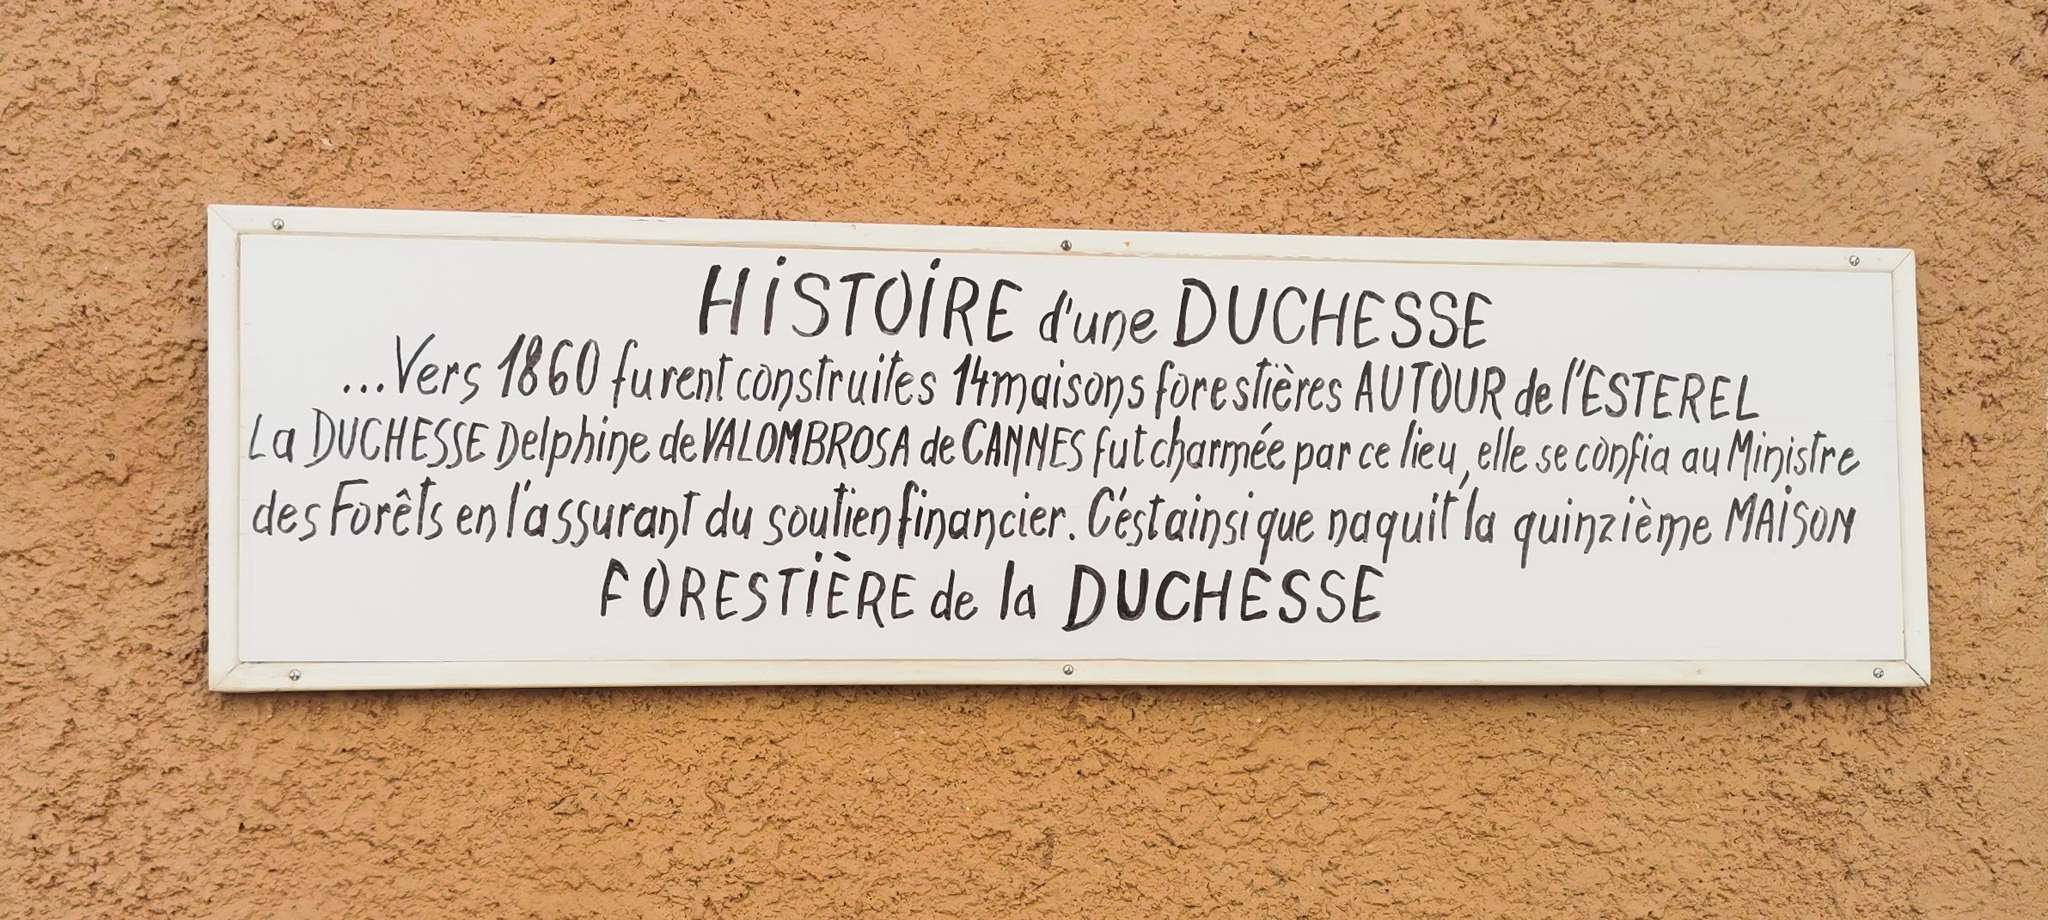 HiSTOiRE d'une DUCHESSE
...Vers 1860 furent construites 14 maisons forestières AUTOUR de l'ESTEREL
La DUCHESSE Delphine de VALOMBROSA de CANNES fut charmée par ce lieu, elle se confia au Ministre
des Forêts en l'assurant du soutien financier. C'est ainsi que naquit la quinzième MAiSON
FORESTiÈRE de la DUCHESSE